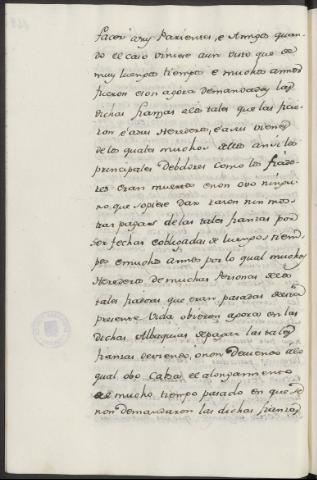 facer a sus Parientes, e Amigos quan-
do el caso viniere aun visto que de
muy luengos tiempos e muchos annos
fueron e son agora demandadas las
dichas fianzas a los tales que las ficie-
ron e a sus Herederos, e a sus vienes
de los quales muchos dellos ansi los
principales Debdores como los fiado-
res eran muertos e non ovo ningu-
no que sopiese dar razon nin mos-
trar pagas de las tales fianzas por
ser fechas e obligadas de luengos tiem-
pos e muchos annos por lo qual muchos
Herederos de muchas Personas de los
tales fiadores que eran pasados desta
presente vida obieron agora en las
dichas Albaquias de pagar las tales
fianzas deviendo, o non deviendo a lo
qual obo Cabsa el alongamiento
de mucho tiempo pasado en que se
non demandaron las dichas fianzas